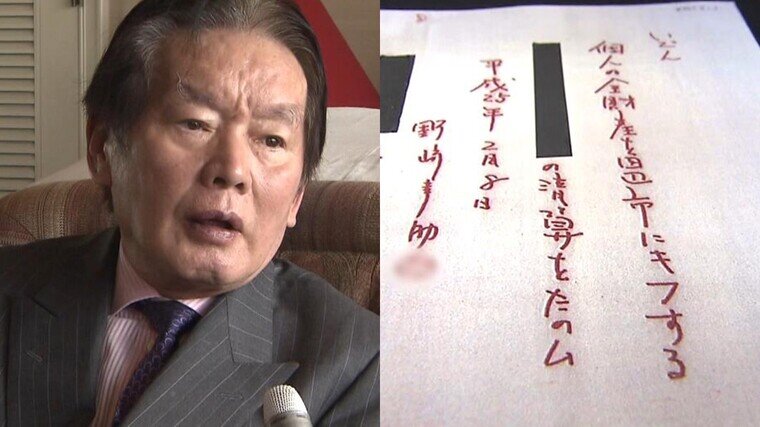 いごん
個人の全財産を田辺市にキフする
の清算をたのム
平成25年2月8日
野崎幸助